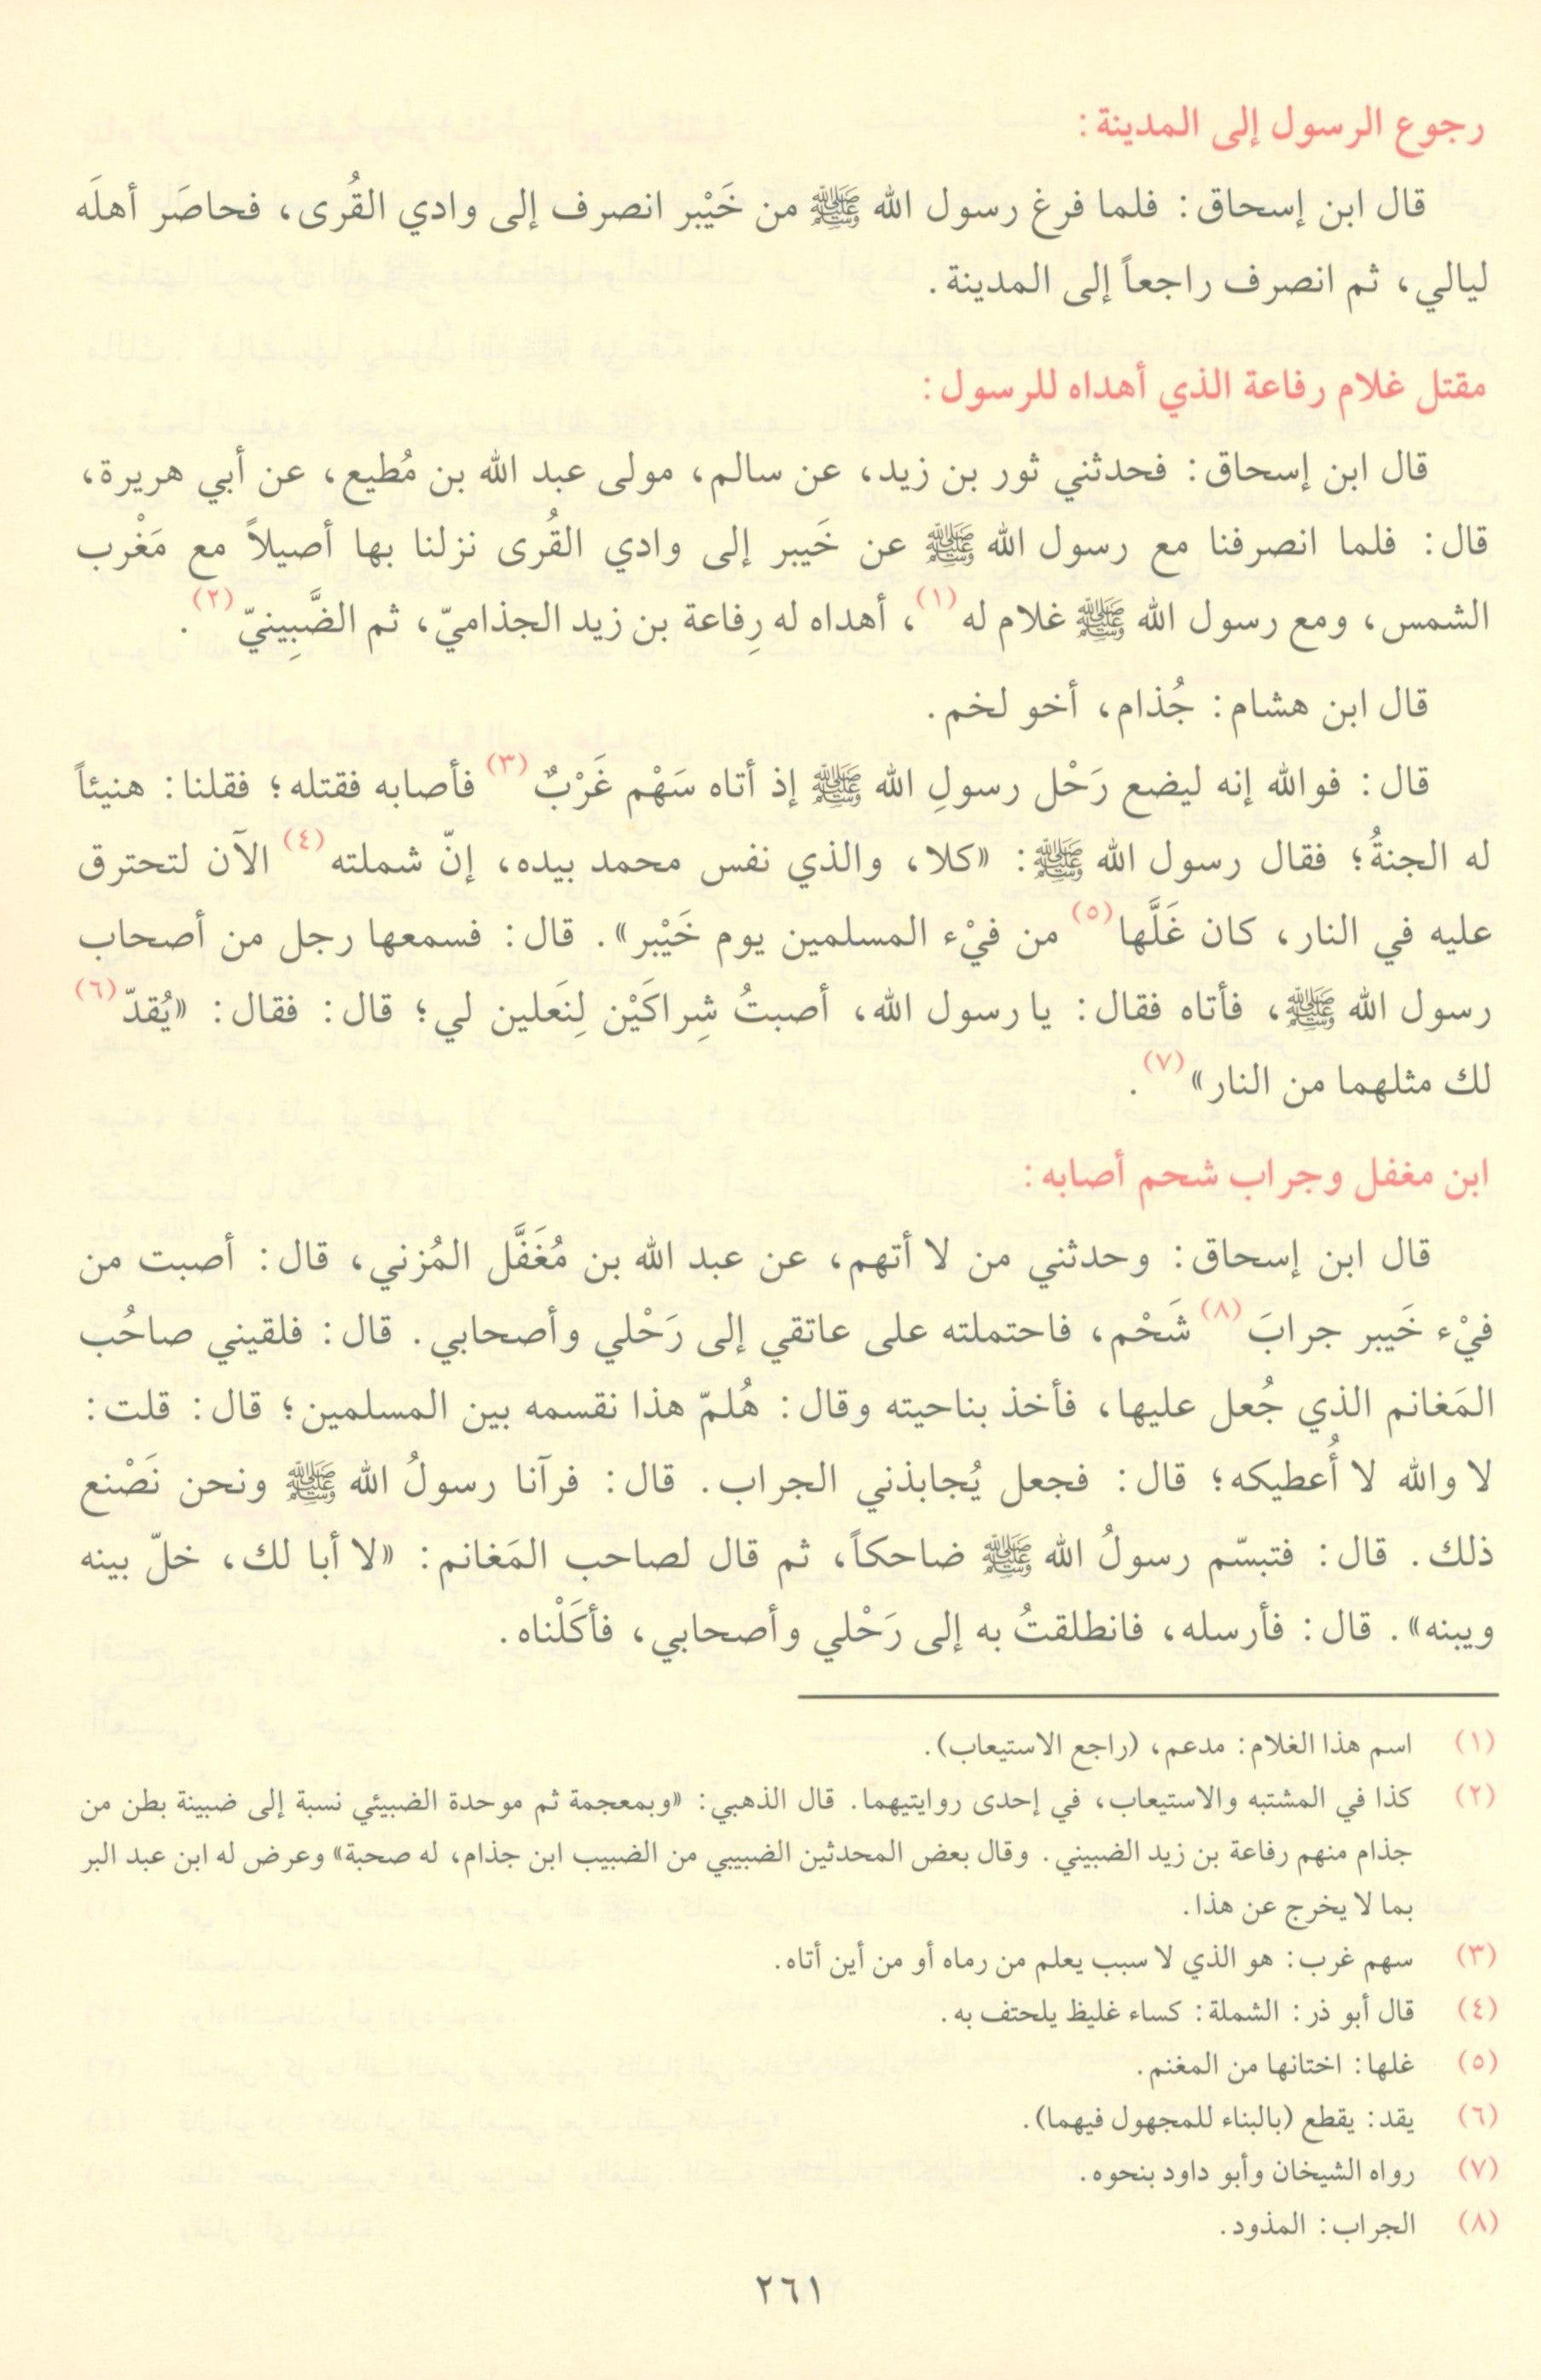 رجوع الرسول إلى المدينة:
قال ابن إسحاق: فلما فرغ رسول الله ﷺ من خَيْبر انصرف إلى وادي القُرى، فحاصَر أهلَه
ليالي، ثم انصرف راجعاً إلى المدينة.
مقتل غلام رفاعة الذي أهداه للرسول:
قال ابن إسحاق: فحدثني ثور بن زيد، عن سالم، مولى عبد الله بن مُطيع، عن أبي هريرة،
قال: فلما انصرفنا مع رسول الله ﷺ عن خَيبر إلى وادي القُرى نزلنا بها أصيلاً مع مَغْرب
الشمس، ومع رسول الله ﷺ غلام له(١)، أهداه له رِفاعة بن زيد الجذاميّ، ثم الضَّبِينيّ(٢).
قال ابن هشام: جُذام، أخو لخم.
قال: فوالله إنه ليضع رَحْل رسولِ الله ﷺ إذ أتاه سَهْم غَرْبٌ(٣) فأصابه فقتله؛ فقلنا: هنيئاً
له الجنةُ؛ فقال رسول الله ﷺ: «كلا، والذي نفس محمد بيده، إنّ شملته(٤) الآن لتحترق
عليه في النار، كان غَلَّها(٥) من فيْء المسلمين يوم خَيْبر». قال: فسمعها رجل من أصحاب
رسول الله ﷺ، فأتاه فقال: يا رسول الله، أصبتُ شِراكَيْن لِنَعلين لي؛ قال: فقال: «يُقدّ(٦)
لك مثلهما من النار»(٧).
ابن مغفل وجراب شحم أصابه:
قال ابن إسحاق: وحدثني من لا أتهم، عن عبد الله بن مُغَفَّل المُزني، قال: أصبت من
فيْء خَيبر جرابَ(٨) شَحْم، فاحتملته على عاتقي إلى رَحْلي وأصحابي. قال: فلقيني صاحُب
المَغانم الذي جُعل عليها، فأخذ بناحيته وقال: هُلمّ هذا نقسمه بين المسلمين؛ قال: قلت:
لا والله لا أُعطيكه؛ قال: فجعل يُجابذني الجراب. قال: فرآنا رسولُ الله ﷺ ونحن نَصْنع
ذلك. قال: فتبسّم رسولُ الله ﷺ ضاحكاً، ثم قال لصاحب المَغانم: «لا أبا لك، خلّ بينه
وبينه». قال: فأرسله، فانطلقتُ به إلى رَحْلي وأصحابي، فأكَلْناه.
(١) اسم هذا الغلام: مدعم، (راجع الاستيعاب).
(٢) كذا في المشتبه والاستيعاب، في إحدى روايتيهما. قال الذهبي: «وبمعجمة ثم موحدة الضبيئي نسبة إلى ضبينة بطن من
جذام منهم رفاعة بن زيد الضبيني. وقال بعض المحدثين الضبيبي من الضبيب ابن جذام، له صحبة» وعرض له ابن عبد البر
بما لا يخرج عن هذا.
(٣) سهم غرب: هو الذي لا سبب يعلم من رماه أو من أين أتاه.
(٤) قال أبو ذر: الشملة: كساء غليظ يلحتف به.
(٥) غلها: اختانها من المغنم.
(٦) يقد: يقطع (بالبناء للمجهول فيهما).
(٧) رواه الشيخان وأبو داود بنحوه.
(٨) الجراب: المذود.
٢٦١